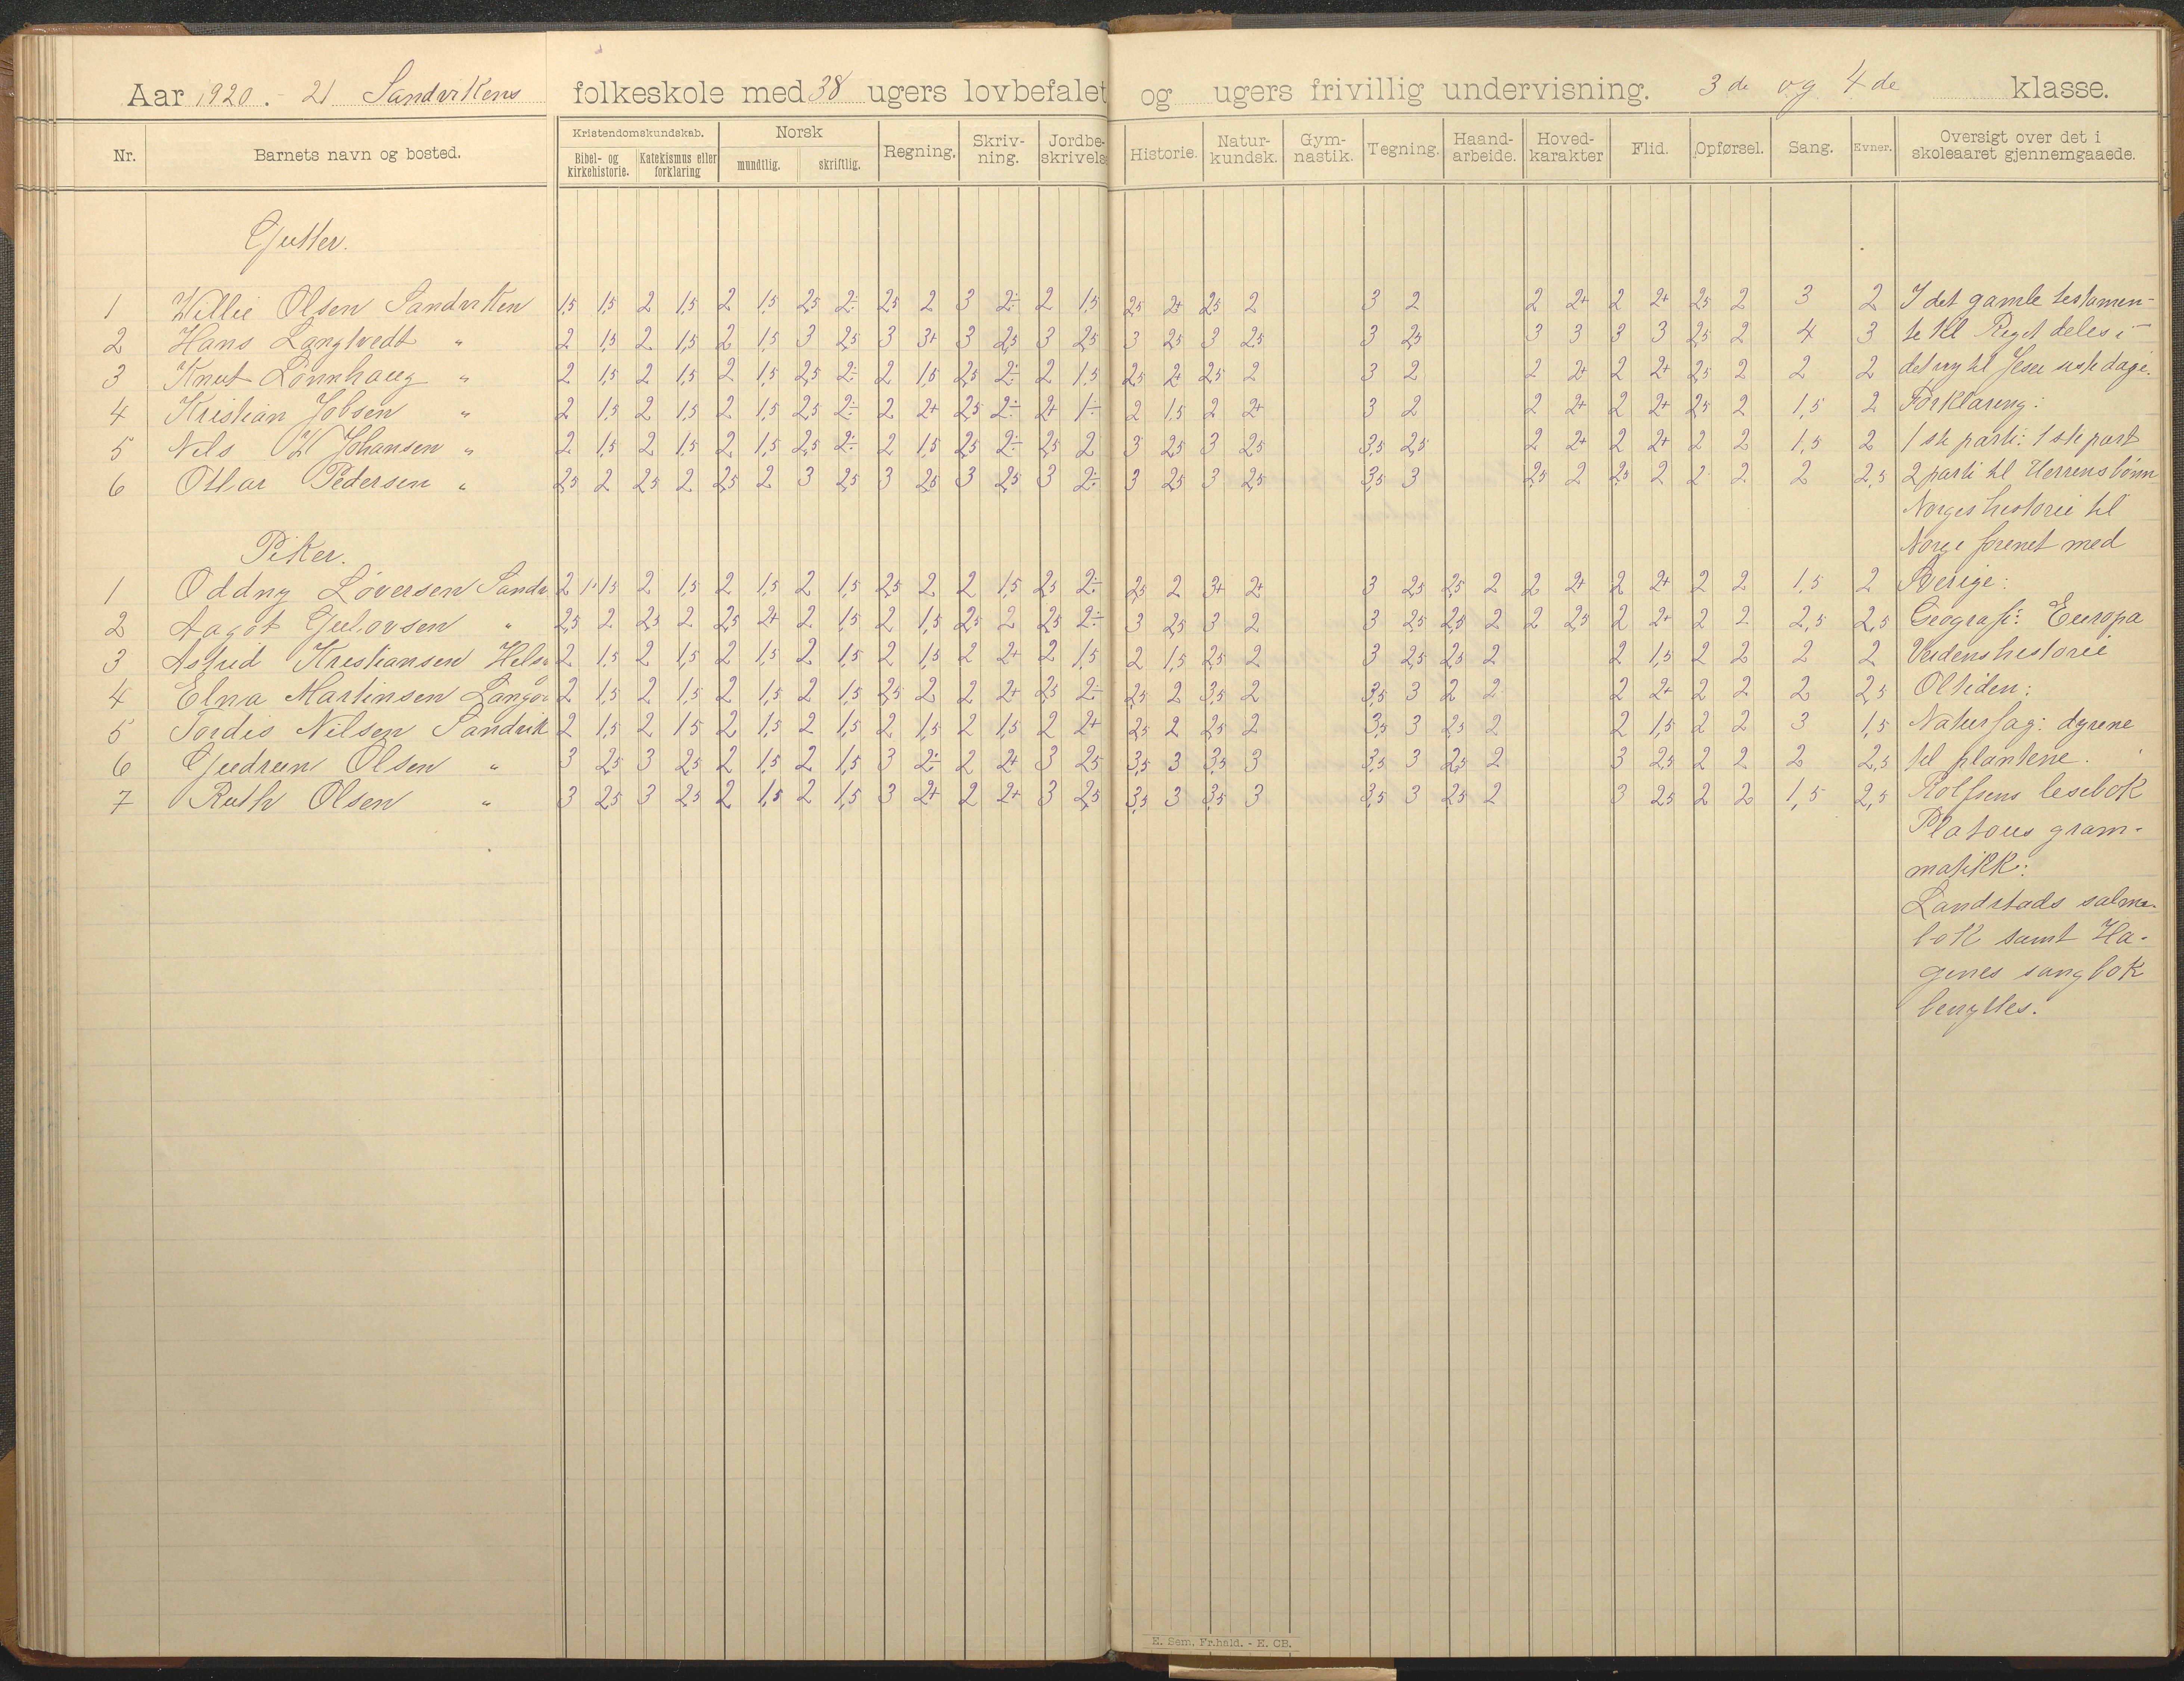 Aar 1920. - 21 Sandvikens folkeskole med 38 ugers lovbefalet og ugers frivillig undervisning. 3 de og 4 de klasse.
Nr. Barnets navn og bosted. Kristendomskundskab. Norsk Regning. Skriv-ning. Jordbe-skrivelse Historie. Natur-kundsk. Gym-nastik. Tegning. Haand-arbeide. Hoved-karakter Flid. Opførsel. Sang. Evner. Oversigt over det i skoleaaret gjennemgaaede.
Bibel- og kirkehistorie. Katekismus eller forklaring mundtlig. skriftlig.
Gutter.
1 Willie Olsen Sandviken 1,5 1,5 2 1,5 2 1,5 2,5 2÷ 2,5 2 3 2÷ 2 1,5 2,5 2+ 2,5 2 3 2 2 2+ 2 2+ 2,5 2 3 2 I det gamle testamen-
2 Hans Langtvedt " 2 1,5 2 1,5 2 1,5 3 2,5 3 3+ 3 2,5 3 2,5 3 2,5 3 2,5 3 2,5 3 3 3 3 2,5 2 4 3 te til Riget deles i
3 Knut Lønnhaug " 2 1,5 2 1,5 2 1,5 2,5 2÷ 2 1,5 2,5 2÷ 2 1,5 2,5 2+ 2,5 2 3 2 2 2+ 2 2+ 2,5 2 2 2 det ny til Jesu siste dage.
4 Kristian Jobsen " 2 1,5 2 1,5 2 1,5 2,5 2÷ 2 2+ 2,5 2÷ 2+ 1÷ 2 1,5 2 2+ 3 2 2 2+ 2 2+ 2,5 2 1,5 2 Forklaring:
5 Nils K Johansen " 2 1,5 2 1,5 2 1,5 2,5 2÷ 2 1,5 2,5 2÷ 2,5 2 3 2,5 3 2,5 3,5 2,5 2 2+ 2 2+ 2 2 1,5 2 1 ste parti: 1 ste part
6 Ottar Pedersen " 2,5 2 2,5 2 2,5 2 3 2,5 3 2,5 3 2,5 3 2÷ 3 2,5 3 2,5 3,5 3 2,5 2 2,5 2 2 2 2 2,5 2 parti til Herrens bønn
Norges historie til
Piker. Norge forenet med
1 Oddny Løversen Sandv 2 1,5 2 1,5 2 1,5 2 1,5 2,5 2 2 1,5 2,5 2÷ 2,5 2 3+ 2+ 3 2,5 2,5 2 2 2+ 2 2+ 2 2 1,5 2 Sverige:
2 Aagot Gulovsen " 2,5 2 2,5 2 2,5 2+ 2 1,5 2 1,5 2,5 2 2,5 2÷ 3 2,5 3 2 3 2,5 2,5 2 2 2,5 2 2+ 2 2 2,5 2,5 Geografi: Europa
3 Astrid Kristiansen Hels 2 1,5 2 1,5 2 1,5 2 1,5 2 1,5 2 2+ 2 1,5 2 1,5 2,5 2 3 2,5 2,5 2 2 1,5 2 2 2 2 Verdenshistorie
4 Elna Martinsen Langø 2 1,5 2 1,5 2 1,5 2 1,5 2,5 2 2 2+ 2,5 2÷ 2,5 2 3,5 2 3,5 3 2 2 2 2+ 2 2 2 2,5 Oltiden:
5 Tordis Nilsen Sandvik 2 1,5 2 1,5 2 1,5 2 1,5 2 1,5 2 1,5 2 2+ 2,5 2 2,5 2 3,5 3 2,5 2 2 1,5 2 2 3 1,5 Naturfag: dyrene
6 Gudrun Olsen " 3 2,5 3 2,5 2 1,5 2 1,5 3 2÷ 2 2+ 3 2,5 3,5 3 3,5 3 3,5 3 2,5 2 3 2,5 2 2 2 2,5 til plantene.
7 Ruth Olsen " 3 2,5 3 2,5 2 1,5 2 1,5 3 2+ 2 2+ 3 2,5 3,5 3 3,5 3 3,5 3 2,5 2 3 2,5 2 2 1,5 2,5 Rolfsens lesebok
Platous gram-
matikk:
Landstads salme-
bok samt Ha-
genes sangbok
benyttes.
E. Sem, Fr.hald. - E. CB.